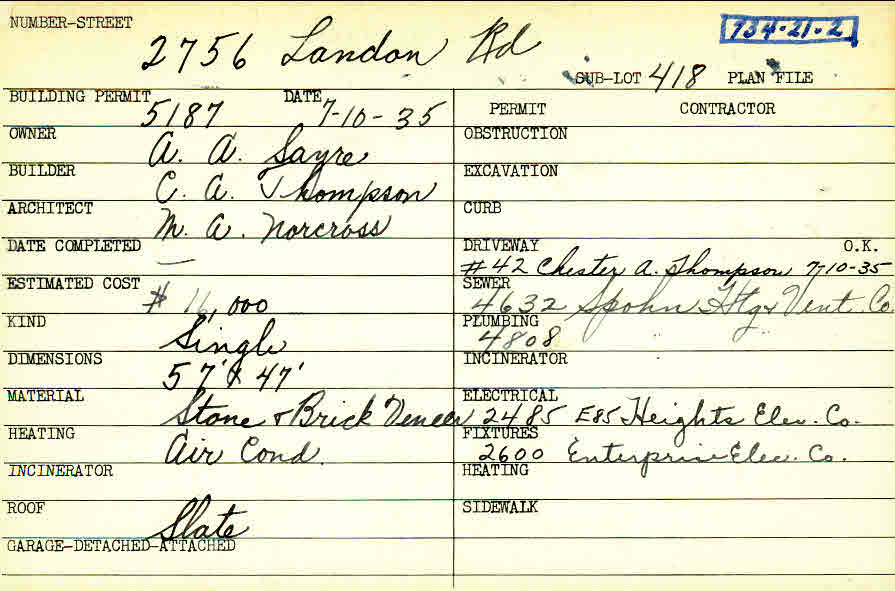 NUMBER-STREET
2756 Landon Rd
734-21-2
SUB-LOT 418 PLAN FILE
BUILDING PERMIT 5187 DATE 7-10-35
OWNER A. A. Sayre
BUILDER C. A. Thompson
ARCHITECT M. A. Norcross
DATE COMPLETED —
ESTIMATED COST $16,000
KIND Single
DIMENSIONS 57' x 47'
MATERIAL Stone & Brick Veneer
HEATING Air Cond.
INCINERATOR
ROOF Slate
GARAGE-DETACHED-ATTACHED
PERMIT CONTRACTOR
OBSTRUCTION
EXCAVATION
CURB
DRIVEWAY O.K.
#42 Chester A. Thompson 7-10-35
SEWER
4632 Spohn Htg & Vent. Co
PLUMBING
4808 " "
INCINERATOR
ELECTRICAL
2485 E85 Heights Elec. Co.
FIXTURES
2600 Enterprise Elec. Co.
HEATING
SIDEWALK